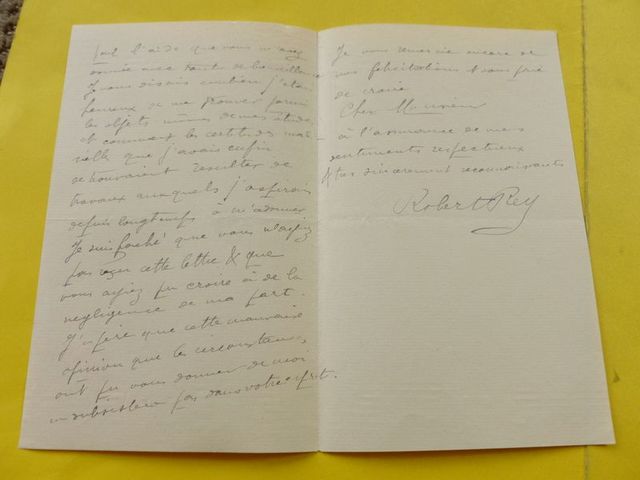 tout l'aide que vous m'avez
donnée avec tant de bienveillance
Je vous disais combien j'étais
heureux de me trouver parmi
les objets mêmes de mes études,
et comment les certitudes maté-
rielle que j'avais enfin
se trouvaient résulter de
travaux auxquels j'aspirais
depuis longtemps à m'adonner
Je suis fâché que vous n'ayiez
pas reçu cette lettre & que
vous ayiez pu croire à de la
négligence de ma part.
J'espère que cette mauvaise
opinion que les circonstances
ont pu vous donner de moi
ne subsistera pas dans votre esprit.
Je vous remercie encore de
vos félicitations & vous prie
de croire
Cher Monsieur
à l'assurance de mes
sentiments respectueux
& très sincèrement reconnaissants
Robert Rey